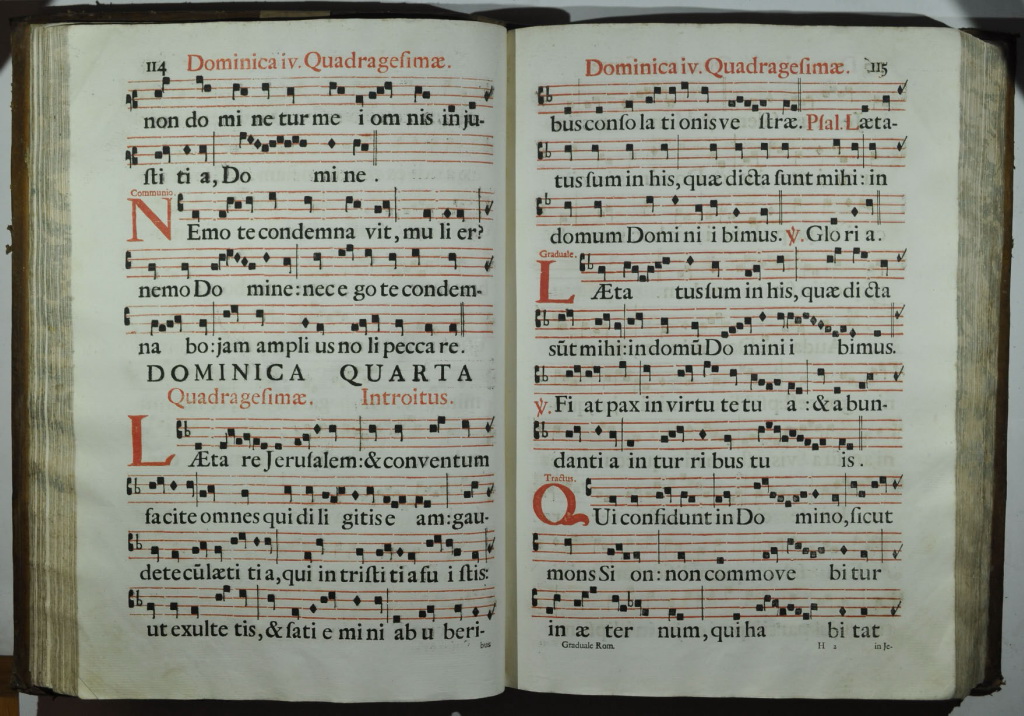 114 Dominica iv. Quadragesimæ.
non do mi ne tur me i om nis in ju-
sti ti a, Do mi ne .
Communio.
NEmo te condemna vit, mu li er?
nemo Do mine: nec e go te condem-
na bo: jam ampli us no li pecca re.
DOMINICA QUARTA
Quadragesimæ. Introitus.
LÆta re Jerusalem: & conventum
facite omnes qui di li gitis e am: gau-
dete cū læti ti a, qui in tristi ti a fu i stis:
ut exulte tis, & sati e mi ni ab u beri-
bus
Dominica iv. Quadragesimæ. 115
bus conso la ti onis ve stræ. Psal. Læta-
tus sum in his, quæ dicta sunt mihi: in
domum Domi ni i bimus. ℣. Glo ri a.
Graduale.
LÆta tus sum in his, quæ di cta
sūt mihi: in domū Do mini i bimus.
℣. Fi at pax in virtu te tu a : & a bun-
danti a in tur ri bus tu is .
Tractus.
QUi confidunt in Do mino, sicut
mons Si on: non commove bi tur
in æ ter num, qui ha bi tat
Graduale Rom. H 2 in Je-